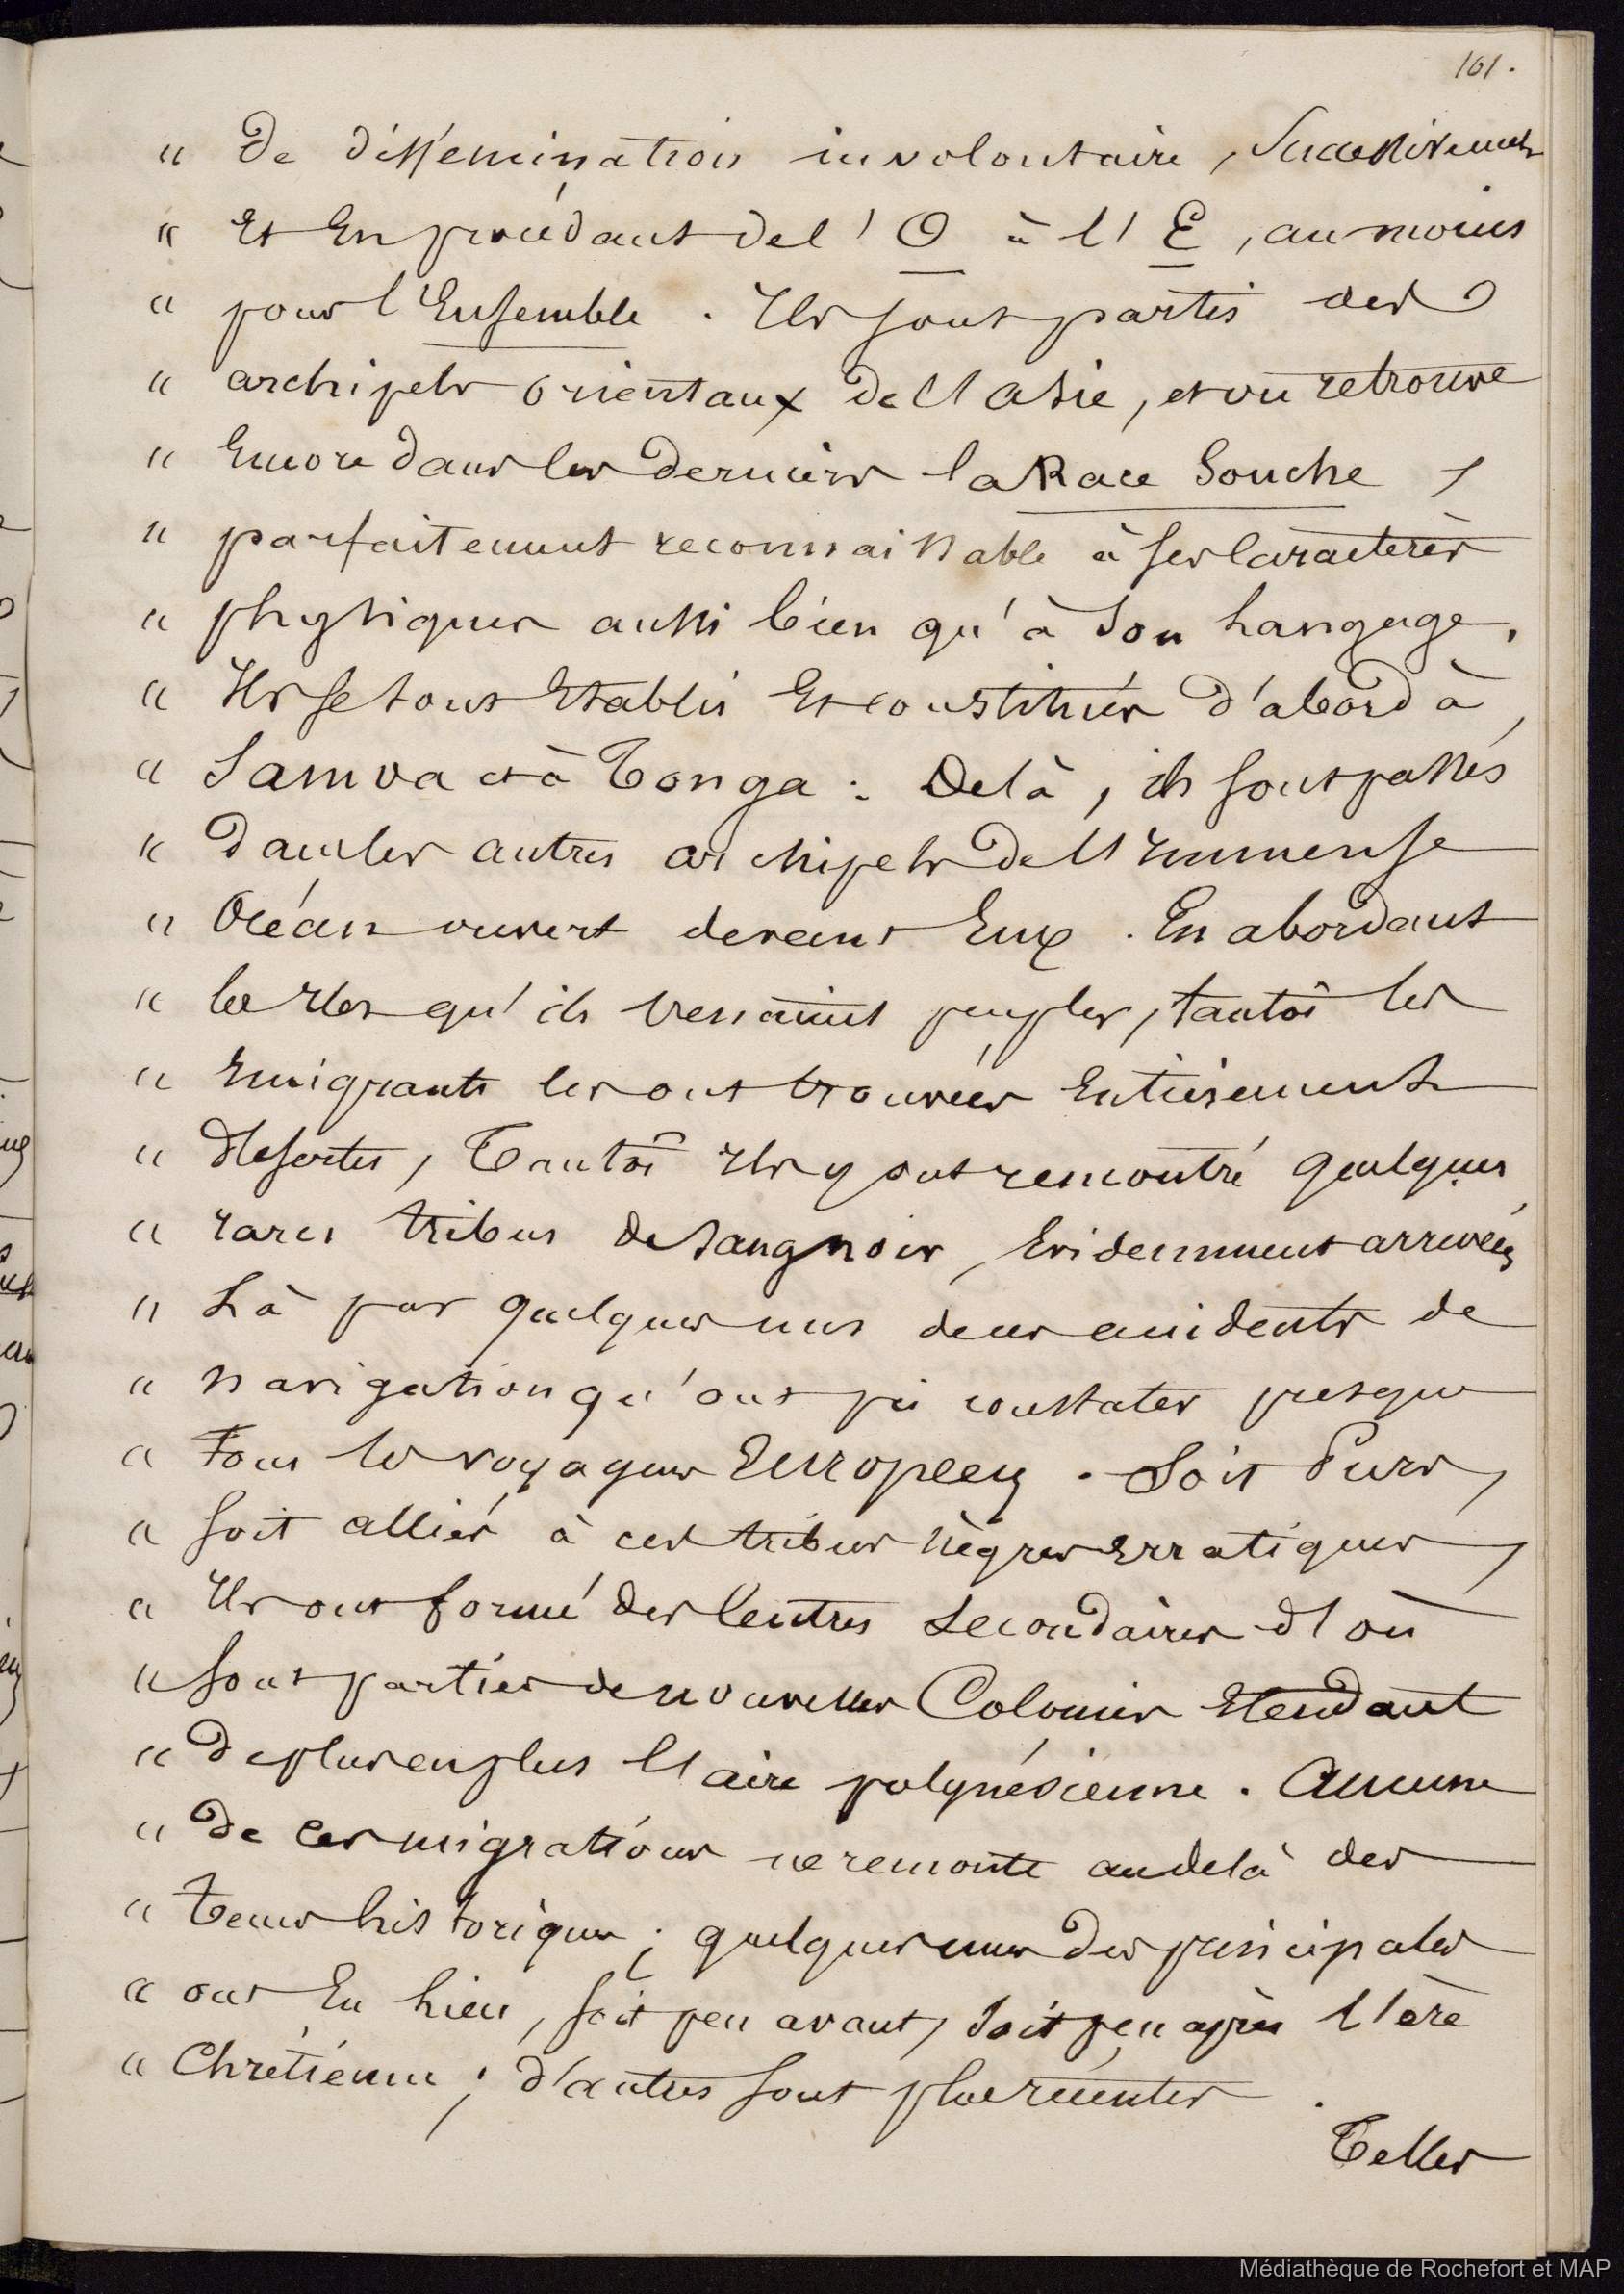 161.
" De dissémination involontaire, Successivement
" Et En procédant de l'O à l'E, au moins
" pour l'Ensemble. Ils sont partis des
" archipels Orientaux de l'Asie, et on retrouve
" Encore dans les derniers la Race Souche,
" parfaitement reconnaissable à ses Caractères
" physiques aussi bien qu'à Son Langage.
" Ils se sont Etablis Et constitués d'abord à
" Samoa et à Tonga : De là, ils sont passés
" Dans les autres archipels de l'Immense
" Océan ouvert devant Eux. En abordant
" les Iles qu'ils venaient peupler, tantôt les
" Emigrants les ont trouvées Entièrement
" désertes, Tantôt Ils y ont rencontré quelques
" rares tribus de Sang noir, Evidemment arrivées
" Là par quelques uns de ces accidents de
" Navigation qu'ont pu constater presque
" Tous les voyageurs Européens. Soit Purs,
" soit alliés à ces tribus Nègres Erratiques,
" Ils ont formé des Centres Secondaires d'où
" Sont parties de nouvelles Colonies Etendant
" De plus en plus l'aire polynésienne. Aucune
" De Ces migrations ne remonte au delà des
" Tems historiques ; quelques unes des principales
" ont Eu Lieu, soit peu avant, Soit peu après l'ère
" Chrétienne ; d'autres sont plus récentes.
Telles
Médiathèque de Rochefort et MAP